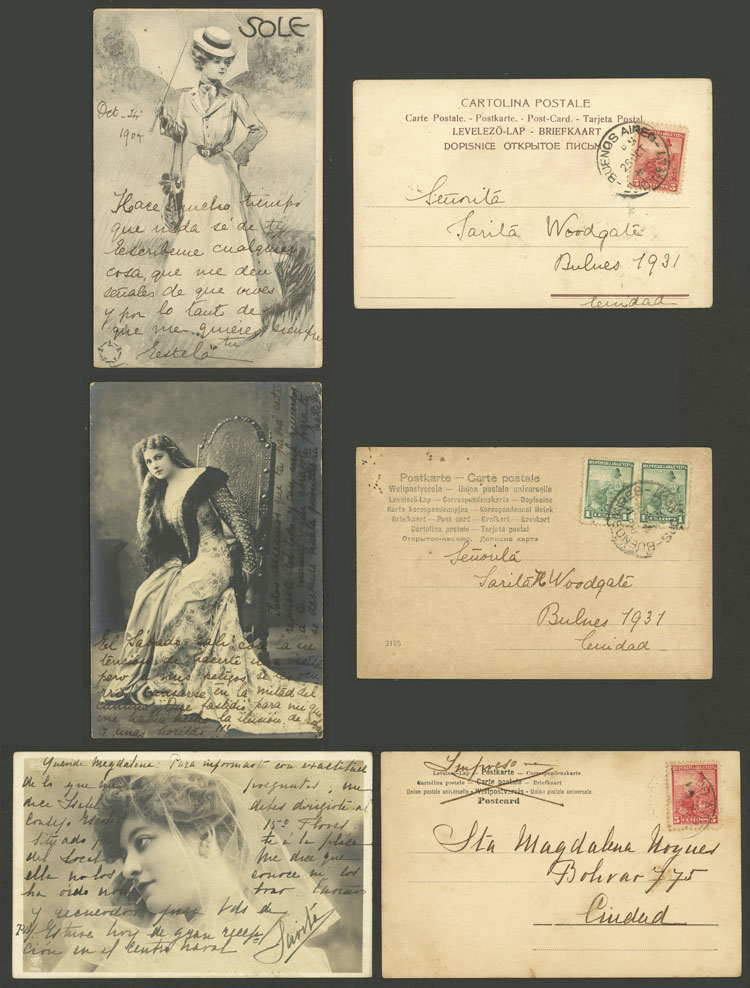 SOLE
Oct-24-
1904
Hace mucho tiempo
que nada sé de ti
Escribeme cualquier
cosa, que me den
señales de que vives
y por lo tanto de
que me quieres siempre
tu
Estela
CARTOLINA POSTALE
Carte Postale. - Postkarte. - Post-Card. - Tarjeta Postal
LEVELEZÖ-LAP - BRIEFKAART
DOPISNICE ОТКРЫТОЕ ПИСЬМ
BUENOS AIRES
5 5
Señoritá
Saritá Woodgate
Bulnes 1931
Ciudad
El Sábado salí con la in
tencion de hacerte una visita
pero á mis petizos se les
cansarse en la mitad del
camino. Que fastidio para mi que
me habia hecho la ilusión de
unas horitas!!!
Postkarte — Carte postale
Weltpostverein — Union postale universelle
Levelező-Lap — Correspondenzkarte — Dopisnice
Karta korespondencyjna — Korespondencni listek
Briefkaart — Post card — Brefkort — Brevkort
Cartolina postale — Tarjeta postal
Открытое-письмо. Дописна карта
REPUBLICA ARGENTINA REPUBLICA ARGENTINA
1 CENTAVO 1 1 CENTAVO 1
BUENOS
Señoritá
Saritá H Woodgate
Bulnes 1931
Ciudad
3195
Querida Magdalena: Para informarte con exactitud
de lo que me preguntas, me
dice Isabel debes dirigirte al
Consejo Escolar 15º Flores
situado te a la plaza
del local Me dice que
ella no los conoce ni los
ha oido nombrar Cariños
y recuerdos para Vds de
Estuve hoy de gran recep
ción en el centro naval
Sarita
Impreso
Levelező-Lap — Postkarte — Correspondenzkarte
Cartolina postale — Carte postale — Tarjeta postal
Union postale universelle — Weltpostverein — Union postale universelle
Postcard
REPUBLICA ARGENTINA
5 CENTAVOS 5
Sta Magdalena Noguer
Bolivar 775
Ciudad